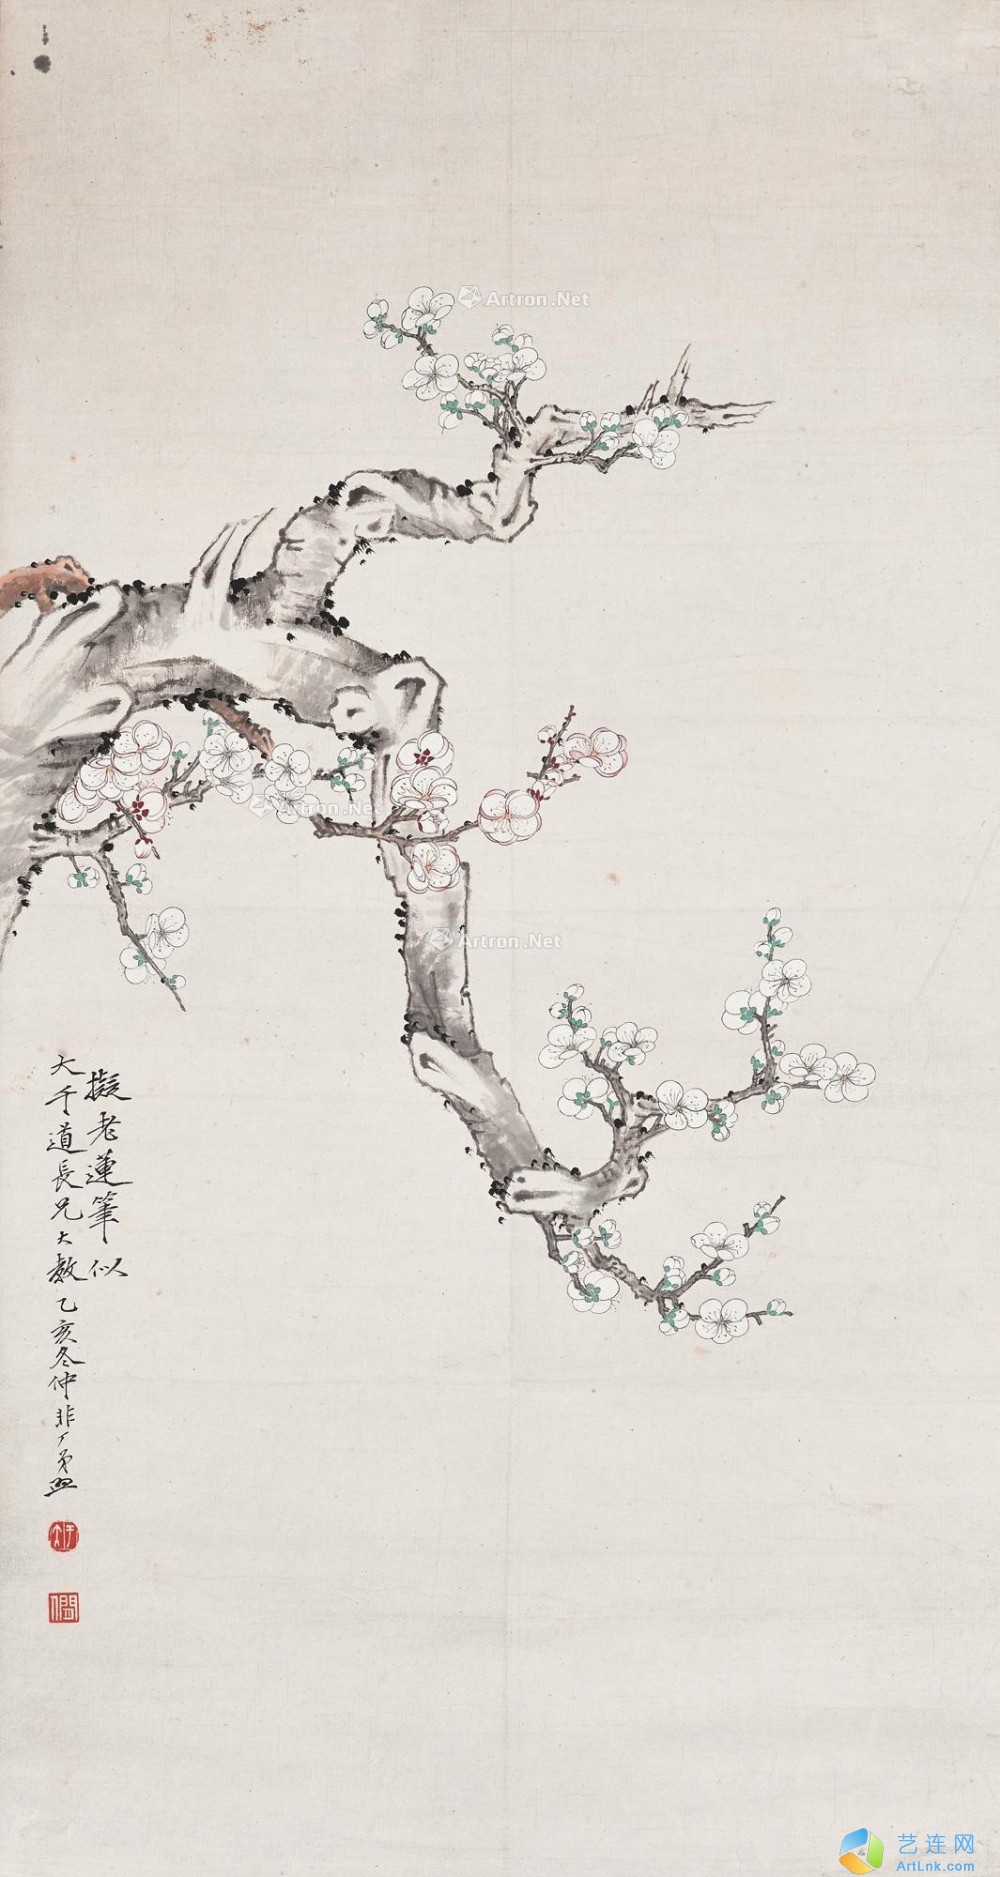 Artron.Net
Artron.Net
Artron.Net
擬老蓮筆似
大千道長兄大教乙亥冬仲非厂弟照
艺连网
ArtLnk.com